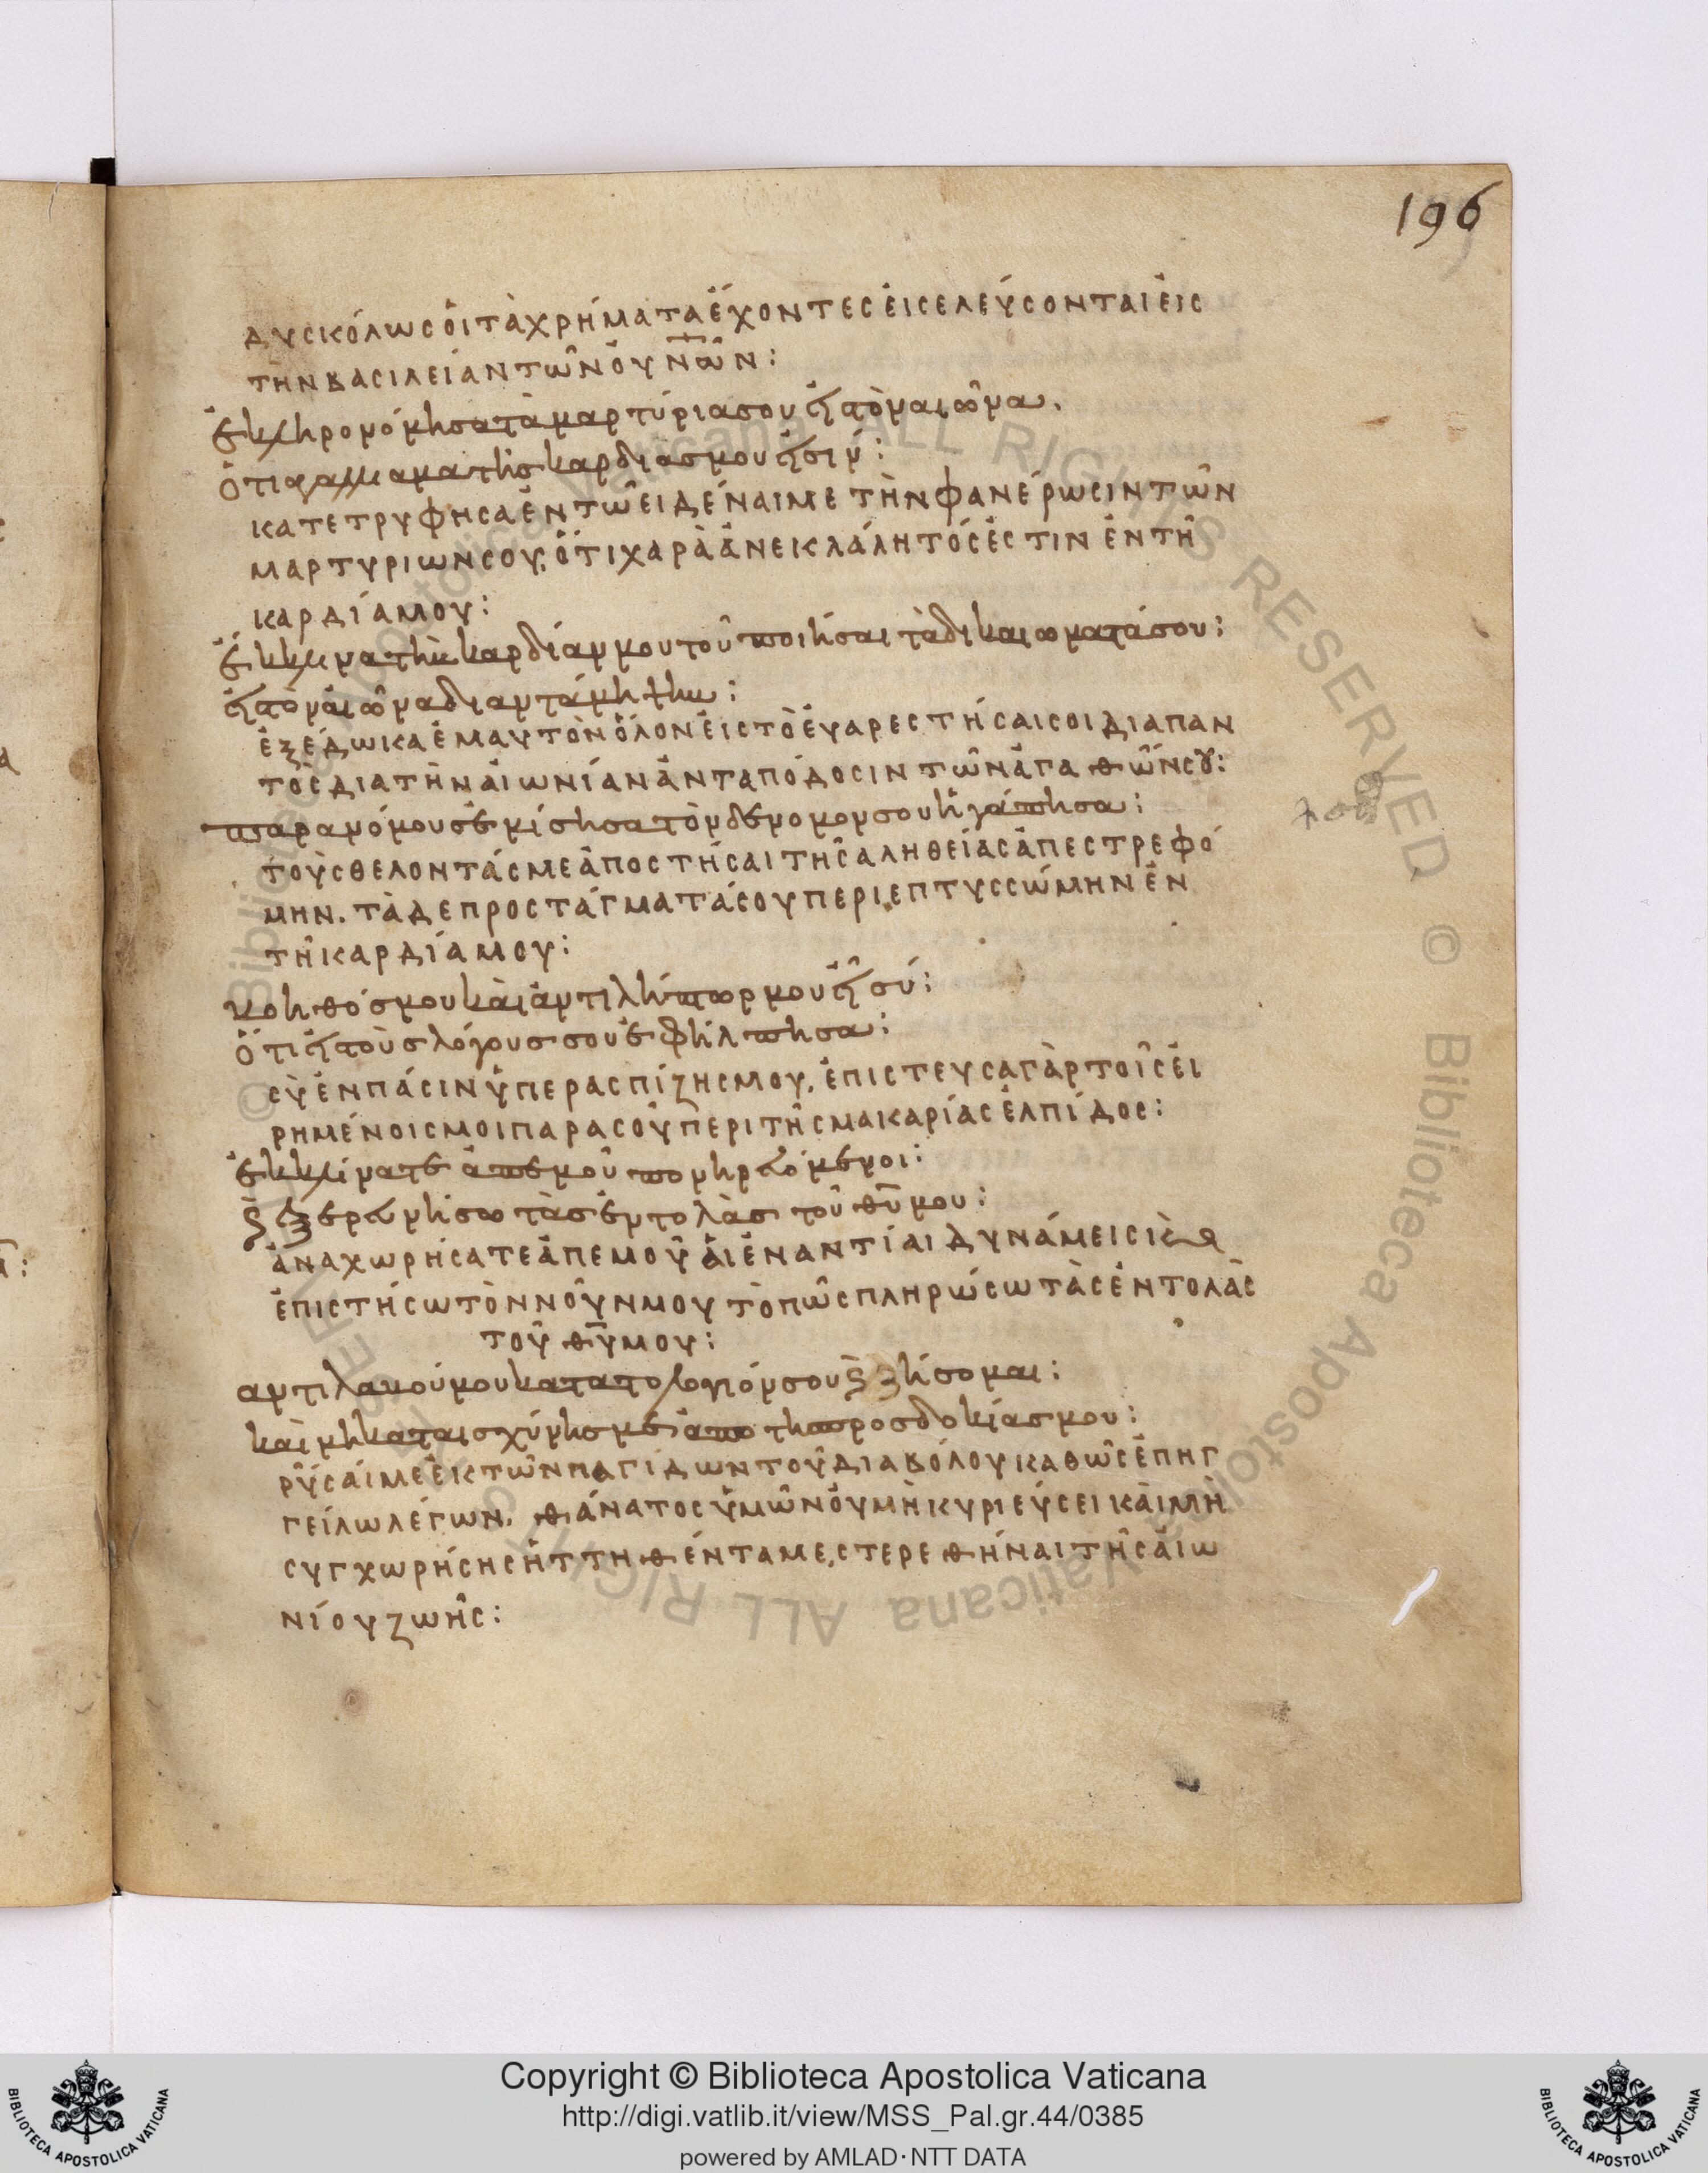 196
δυσκόλως ὁι τὰ χρήματα ἔχοντες ἐισελεύσονται ἐις
τὴν βασιλείαν τῶν ὀυνῶν:
ἐκληρονόμησα τὰ μαρτύριά σου εἰς τὸν αἰῶνα.
ὅτι ἀγαλλίαμα τῆς καρδίας μου εἰσίν:
κατετρύφησα ἐν τῶ ειδέναι με τὴν φανέρωσιν τῶν
μαρτυριων σου, ὅτι χαρὰ ἀνεκλάλητός ἐστιν ἐν τῆ
καρδία μου:
ἔκλινα τὴν καρδίαν μου τοῦ ποιῆσαι τὰ δικαιωματά σου:
εἰς τὸν ἀιῶνα δι ἀντάμηψιν:
ἐξέδωκα ἐμαυτὸν ὅλον ἐις τὸ ἐυαρεστήσαι σοι διαπαν
τὸς δια τὴν ἀιωνίαν ἀνταπόδοσιν τῶν ἀγαθῶν σου:
παρανόμους ἐμίσησα τὸν δε νομον σου ἠγάπησα:
τοὺς θελοντάς με ἀποστήσαι τῆς αληθείας ἀπεστρεφό
μην. τὰ δε προστάγματά σου περιεπτυσσώμην ἐν
τῆ καρδία μου:
βοηθός μου καὶ ἀντιλήπτωρ μου εἶ σύ:
ὅτι εἰς τοὺς λόγους σου ἐπήλπησα:
σὺ ἐν πάσιν ὑπερασπίζης μου, ἐπιστευσα γὰρ τοῖς ἐι
ρημένοις μοι παρα σοῦ περι τῆς μακαρίας ἐλπίδος:
ἐκκλίνατε ἀπ εμοῦ πονηρευόμενοι:
καὶ ἐξερευνήσω τὰς ἐντολὰς τοῦ θυ μου:
ἀναχωρήσατε ἀπ εμοῦ ἁι ἐναντίαι δυνάμεις ἵνα
ἐπιστήσω τὸν νοῦν μου τὸ πῶς πληρώσω τὰς ἐντολὰς
τοῦ θυ μου:
αντιλαβοῦ μου κατα το λογιόν σου καὶ ζήσομαι:
καὶ μη καταισχύνης με ἀπο της προσδοκίας μου:
ρῦσαί με ἐκ τῶν παγίδων τοῦ διαβόλου καθῶς ἐπηγ
γείλω λέγων. θάνατος ὑμῶν ὀυ μὴ κυριεύσει κὰι μὴ
συγχωρήσης ἡττηθέντα με, στερεθήναι τῆς ἀιω
νίου ζωῆς:
Copyright © Biblioteca Apostolica Vaticana
http://digi.vatlib.it/view/MSS_Pal.gr.44/0385
powered by AMLAD·NTT DATA